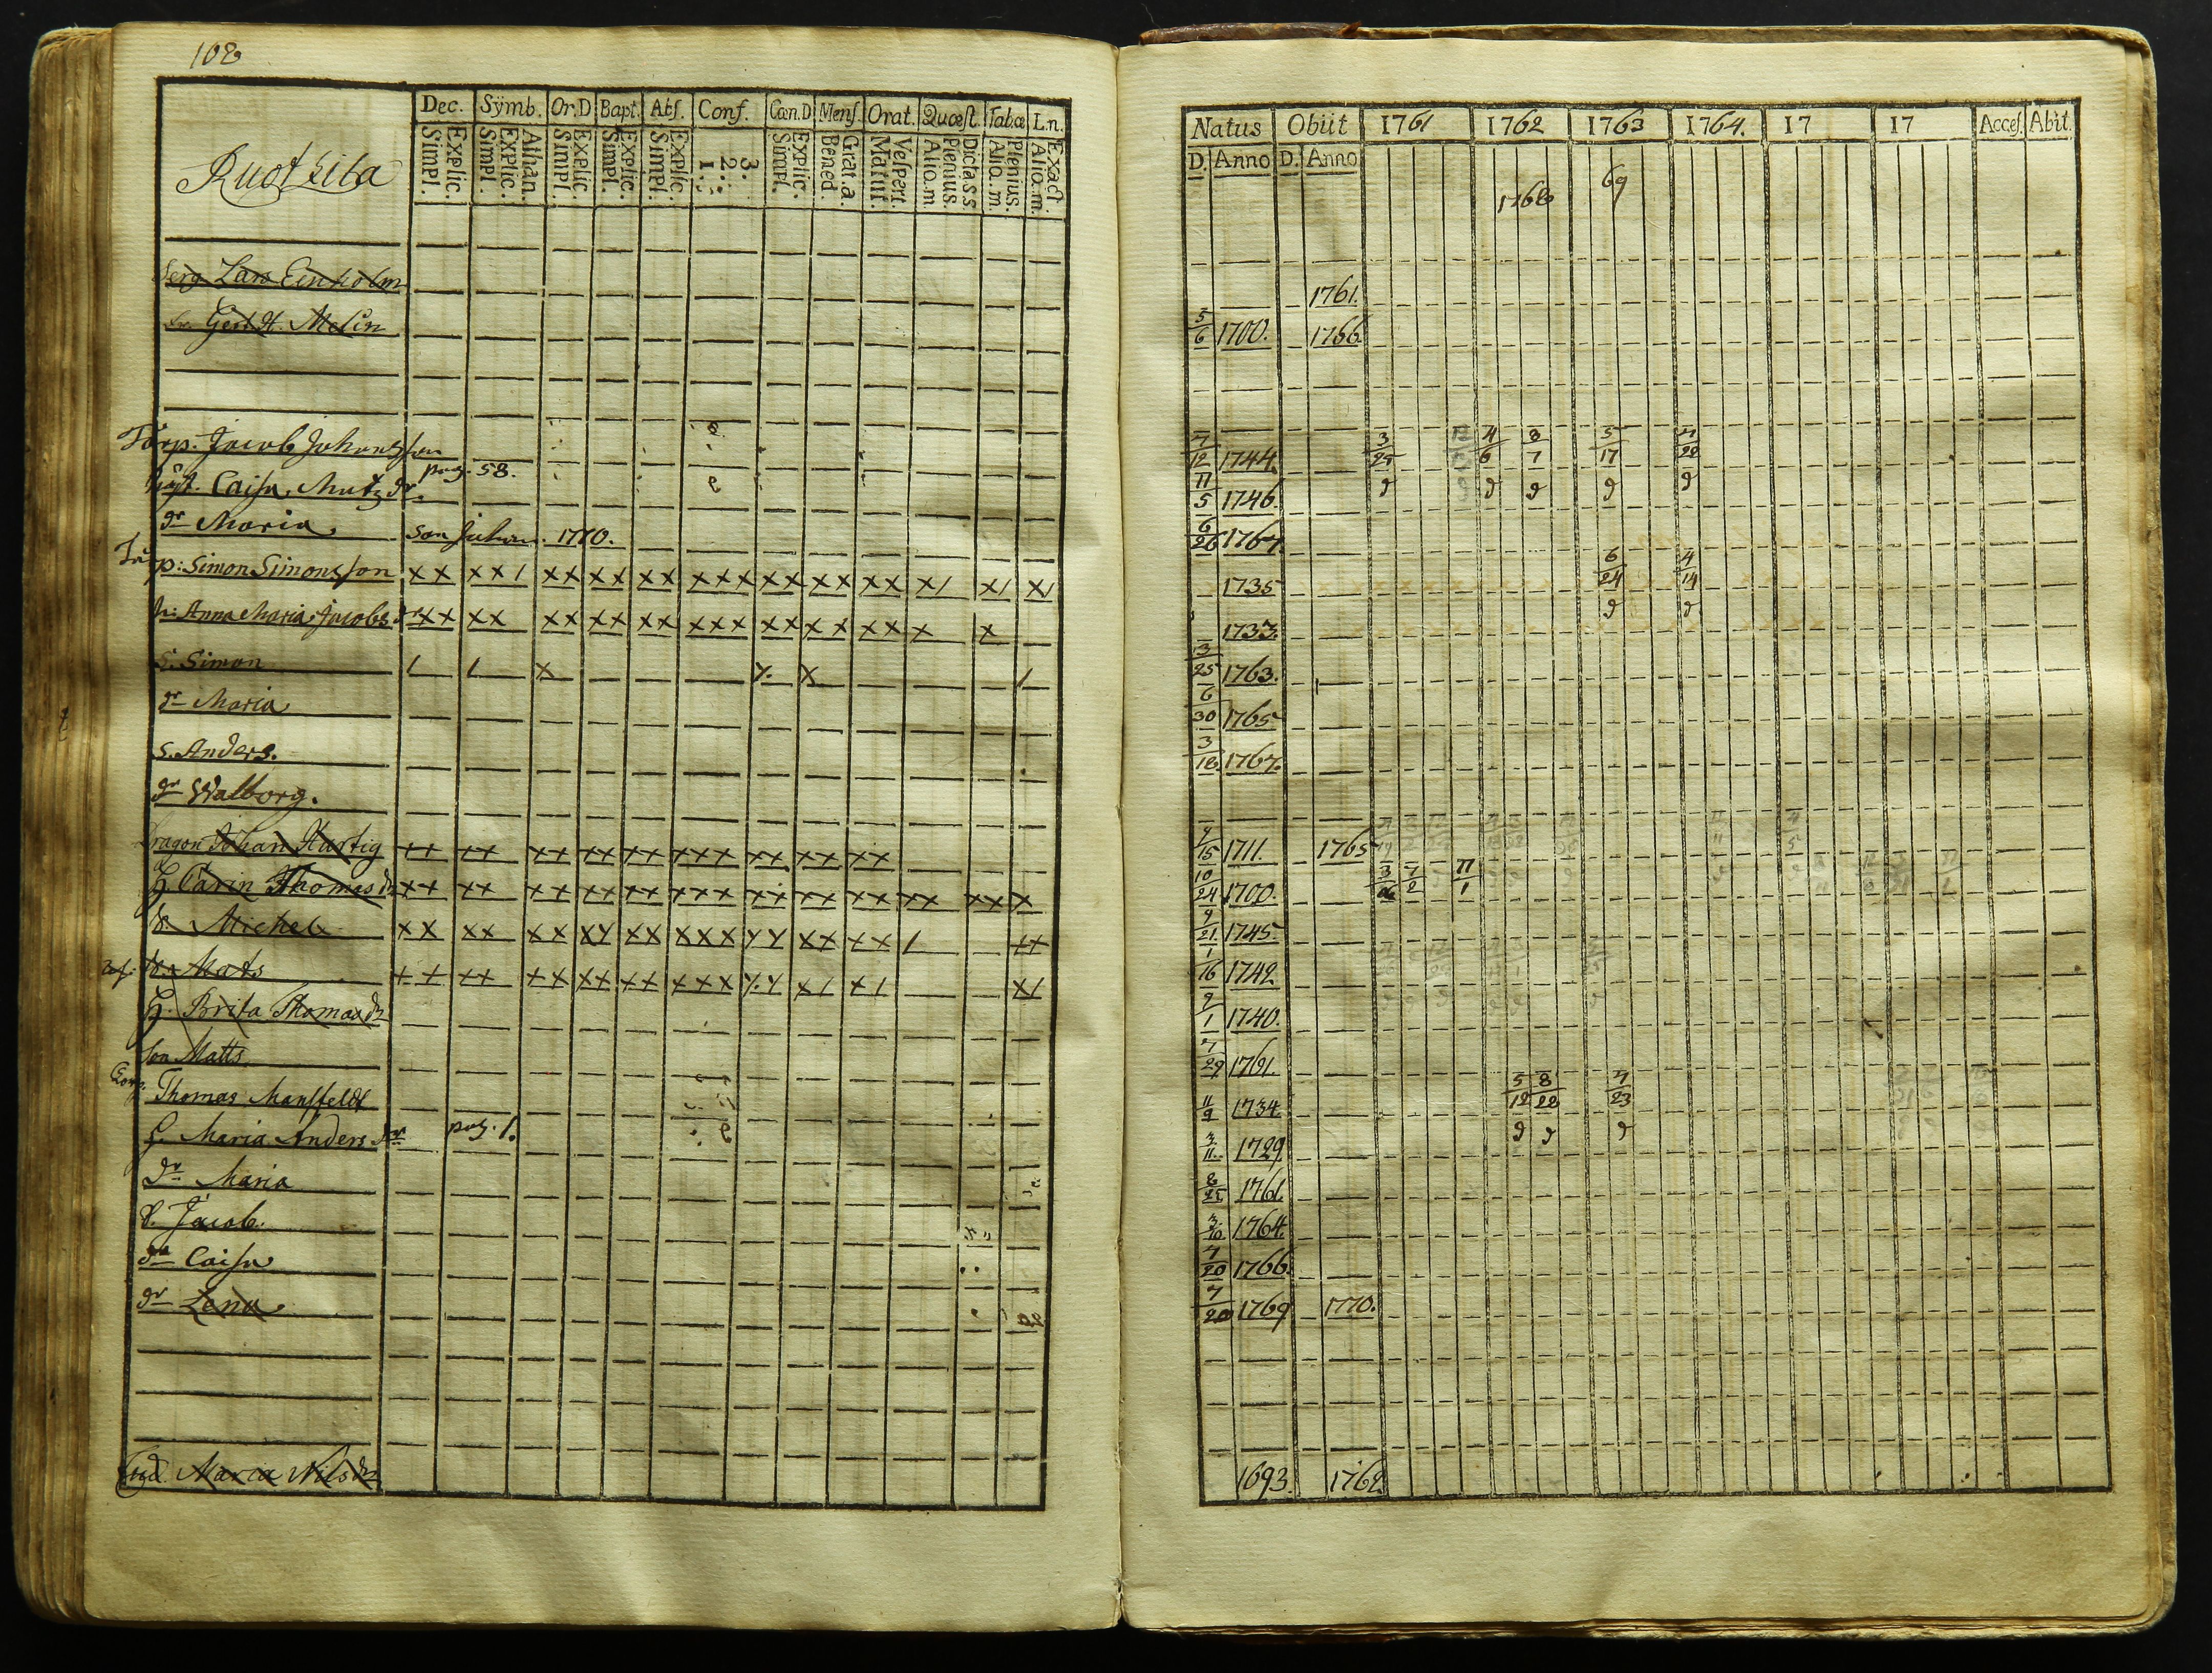 108
Dec. Sÿmb. Or.D Bapt. Abſ. Conf. Cœn.D Menſ. Orat. Quæſt. Tab.œ L.n.
Explic. Simpl. Athan. Explic. Simpl. Explic. Simpl. Explic. Simpl. Explic. Simpl. 3. 2. 1. Explic. Simpl. Grat.a. Bened. Veſpert. Matut. Dicta s.s. Plenius. Aliq.m. Plenius. Aliq.m. Exact. Aliq.m.
Ruotsila
Serg Lars Einholm
Gert H. Melin
Torp. Jacob Johansson
hust. Caisa Matzdr. pag. 58.
dr Maria son Johan. 1770.
Torp: Simon Simonsson xx xx1 xx xx xx xxx xx xx xx x1 x1 x1
h: Anna Maria Jacobsdr xx xx xx xx xx xxx xx xx xx x x
S. Simon 1 1 x x x 1
dr Maria
S. Anders.
dr Walborg.
Dragon Johan Hartig xx xx xx xx xx xxx xx xx xx
H Carin Thomas dr xx xx xx xx xx xxx xx xx xx xx xx x
S. Michel xx xx xx xx xx xxx xx xx xx 1 xx
S. Mats xx xx xx xx xx xxx xx x1 x1 x1
H. Brita Thomasdr
son Matts
Corp. Thomas Mansfeldt
H. Maria Andersdr pag. 1.
dr Maria
S. Jacob.
dr Caisa
dr Lena
Maria Nilsdr
Natus Obiit 1761 1762 1763 1764. 17 17 Acceſ. Abit.
D. Anno D. Anno
1768 69
1761.
5/6 1700. 1766.
7/12 1744. 3/29 4/6 8/7 5/17 4/22
11/5 1746. d d d d d
6/26 1767.
1735 6/24 4/14
1733. d d
3/25 1763.
6/30 1765
3/18 1767.
9/15 1711. 1765
10/24 1700. 3/26 7/2 11/1
9/21 1745.
1/16 1742.
9/1 1740.
7/29 1761.
11/9 1734. 5/12 8/22 4/23
3/11 1729. d d d
8/25 1761.
3/10 1764.
7/20 1766.
7/20 1769 1770.
1693. 1762.